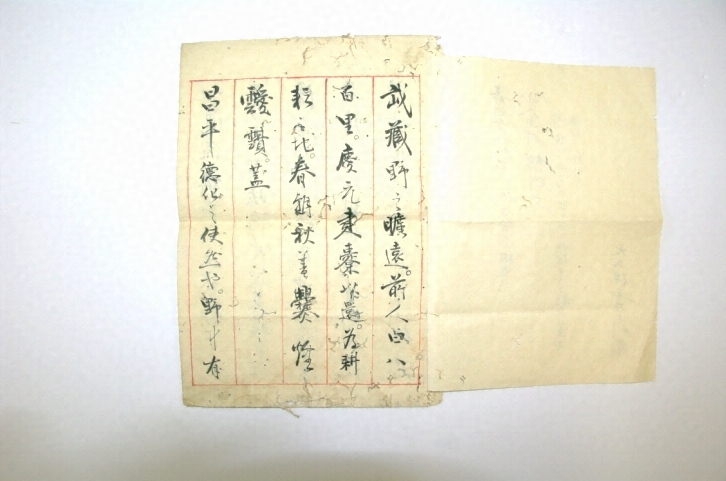 武藏野之曠遠。前人曰八
百里。慶元建橐以還。為耕
耘之地。春耕秋
靉靆。蓋
昌平德化之使然也。野中有